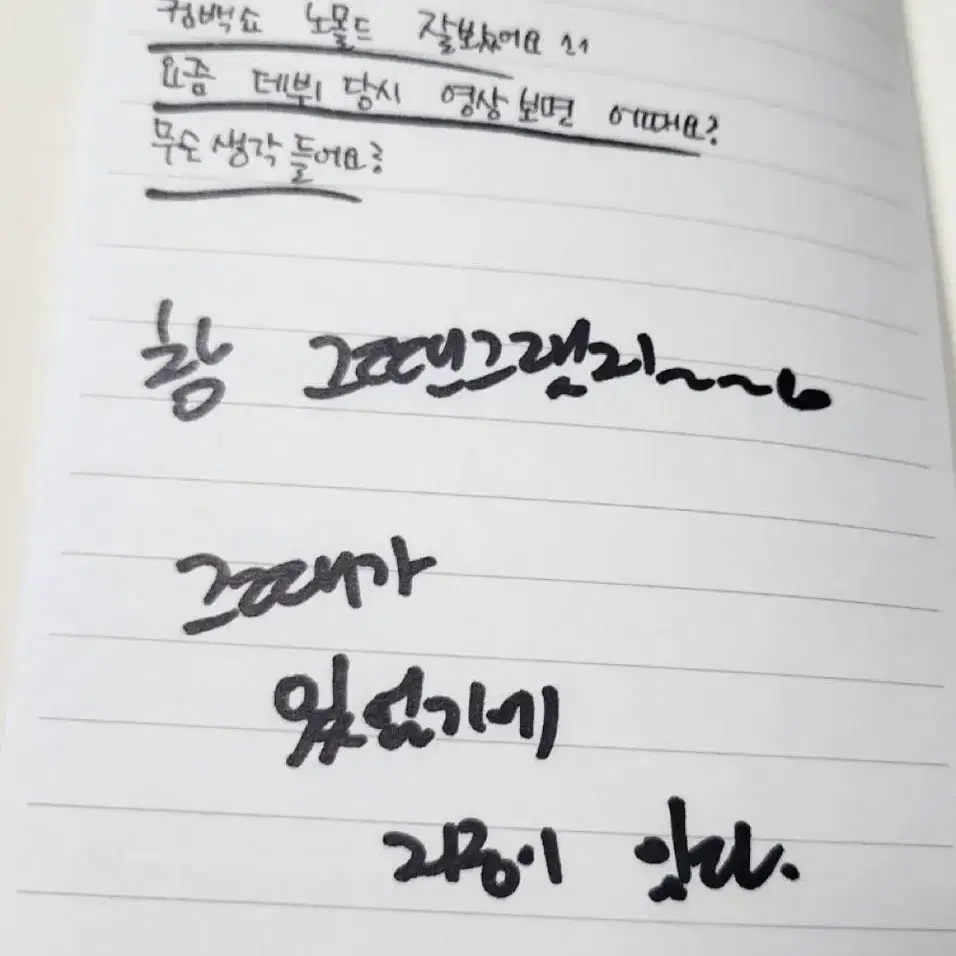 컴백쇼 노몰드 잘봤어요
요즘 데뷔 당시 영상 보면 어때요?
무슨 생각 들어요?
참 그땐그랬지~~~
그때가
있었기에
지금이 있다.